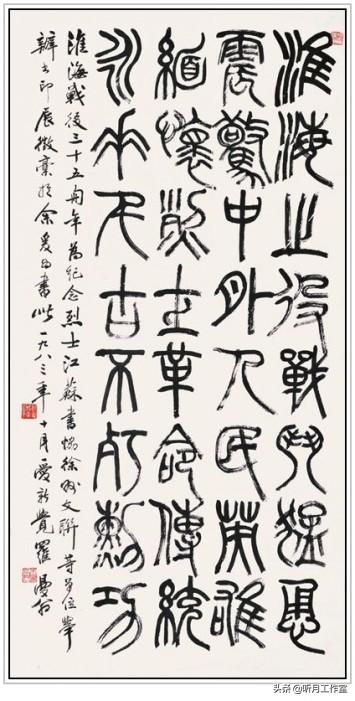 淮海之役戰鬥猛恿
震驚中外人民英雄
緬懷烈士革命傳統
永垂千古不朽勳功
淮海戰後三十五周年為紀念烈士江蘇書協徐州文聯等单位舉
辦書印展徵稾於余爰為書此一九八三年十月愛新覺羅曼翁
头条 @听月工作室